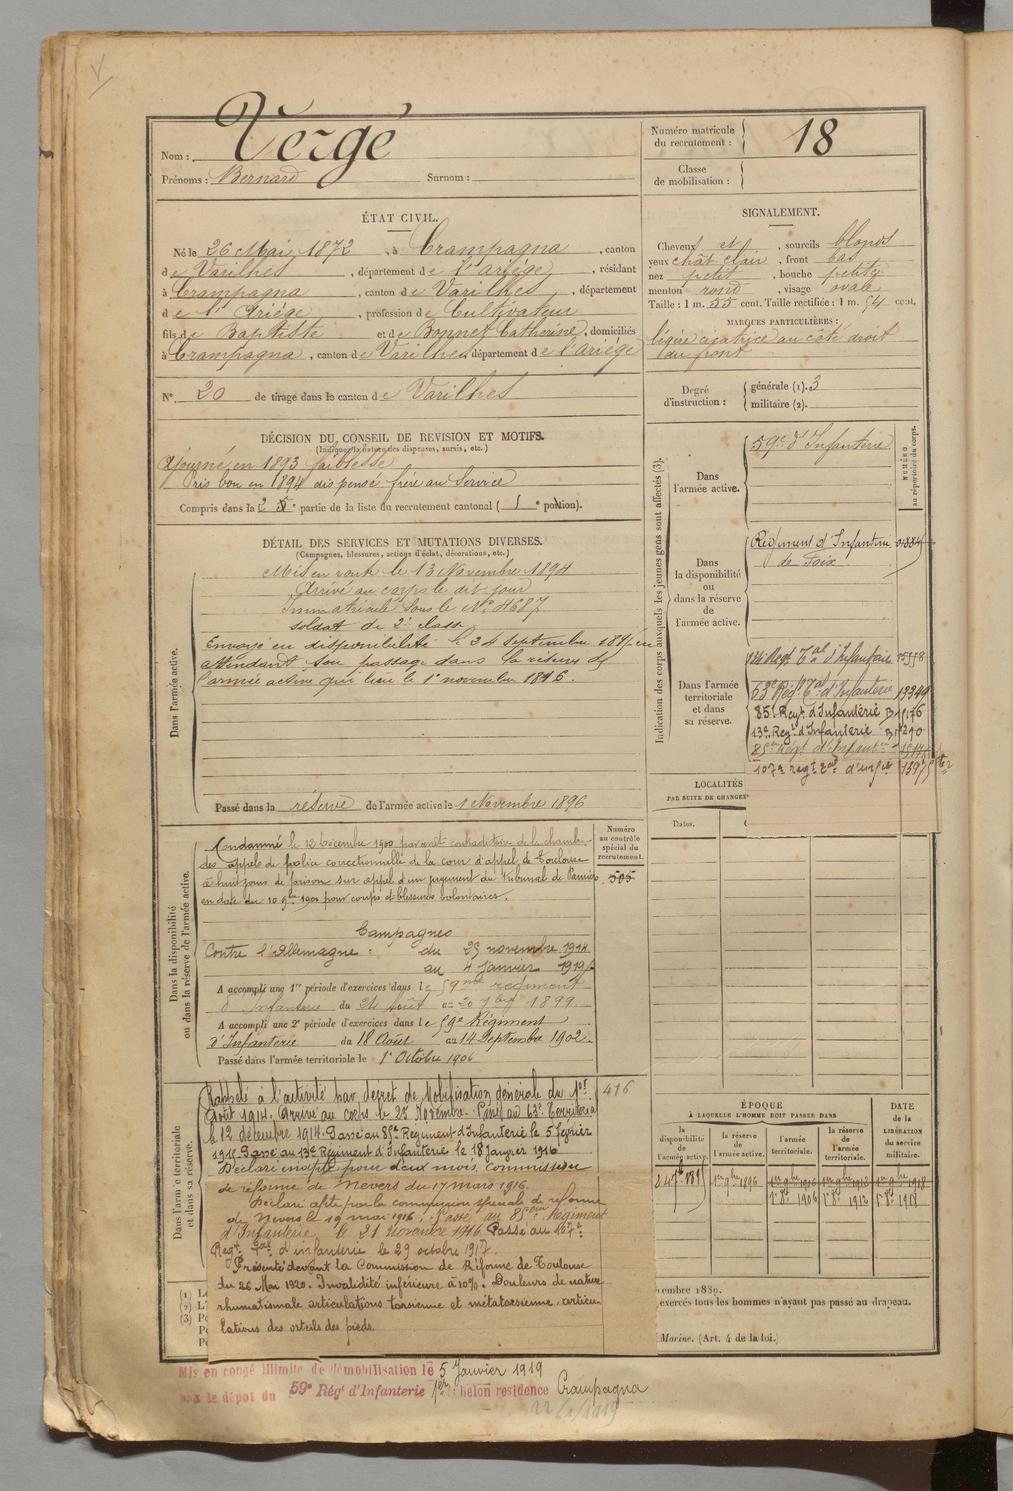 Nom : Vergé
Prénoms : Bernard Surnom :
Numéro matricule du recrutement : 18
Classe de mobilisation :
ÉTAT CIVIL.
Né le 26 Mai 1872, à Crampagna, canton
de Varilhes, département de l'Ariège, résidant
à Crampagna, canton de Varilhes, département
de l'Ariège, profession de Cultivateur
fils de Baptiste et de Bonnet Catherine, domiciliés
à Crampagna, canton de Varilhes, département de l'ariège
N° 20 de tirage dans le canton de Varilhes
SIGNALEMENT.
Cheveux et, sourcils blonds
yeux chât clair, front bas
nez petit, bouche petite
menton rond, visage ovale
Taille : 1 m. 55 cent. Taille rectifiée : 1 m. 54 cent.
MARQUES PARTICULIÈRES :
légère cicatrice au côté droit
du front
Degré d'instruction : générale (1). 3
militaire (2).
DÉCISION DU CONSEIL DE REVISION ET MOTIFS.
(Indiquer la nature des dispenses, sursis, etc.)
Ajourné en 1893 faiblesse
Pris bon en 1894 dispensé frère au Service
Compris dans la 2e partie de la liste du recrutement cantonal ( 1e portion).
DÉTAIL DES SERVICES ET MUTATIONS DIVERSES.
(Campagnes, blessures, actions d'éclat, décorations, etc.)
Dans l'armée active.
Mis en route le 13 Novembre 1894
Arrivé au corps le dit jour
Immatriculé sous le N° 4687
soldat de 2e classe
Envoyé en disponibilité le 24 septembre 1895 en
attendant son passage dans la réserve de
l'armée active qui a lieu le 1er novembre 1896.
Passé dans la réserve de l'armée active le 1 Novembre 1896
Indication des corps auxquels les jeunes gens sont affectés (3).
NUMÉRO au répertoire du corps.
Dans l'armée active.
59e d'Infanterie
Dans la disponibilité ou dans la réserve de l'armée active.
Régiment d'Infanterie 01884
de Foix
Dans l'armée territoriale et dans sa réserve.
Regt Tal d'Infanterie
63e Régt Tal d'Infanterie 13349
85e Regt d'Infanterie
13e Regt d'Infanterie
85e Regt d'Infanterie
107e regt Tal d'infie
LOCALITÉS
PAR SUITE DE CHANGE
Dates.
Dans la disponibilité ou dans la réserve de l'armée active.
Numéro au contrôle spécial du recrutement.
505
Condamné le 12 Décembre 1900 par arrêt contradictoire de la chambre
des appels de police correctionnelle de la cour d'appel de Toulouse
à huit jours de prison sur appel d'un jugement du Tribunal de Pamiers
en date du 10 9bre 1900 pour coups et blessures volontaires.
Campagnes
Contre l'Allemagne : du 23 novembre 1914
au 4 Janvier 1919
A accompli une 1re période d'exercices dans le 59me régiment
d'Infanterie du 24 Août au 20 7bre 1899
A accompli une 2e période d'exercices dans le 59e Régiment
d'Infanterie du 18 Août au 14 Septembre 1902.
Passé dans l'armée territoriale le 1er Octobre 1906
Dans l'armée territoriale et dans sa réserve.
416
Rappelé à l'activité par décret de Mobilisation générale du 1er
Août 1914. Arrivé au corps le 23 Novembre. Passé au 63e Territorial
le 12 décembre 1914. Passé au 85e Régiment d'Infanterie le 5 février
1915 Passé au 13e Régiment d'Infanterie le 18 janvier 1916
Déclaré inapte pour deux mois, commission
de réforme de Nevers du 17 mars 1916.
Déclaré apte par la commission spéciale de réforme
de Nevers le 19 mai 1916. Passé au 85ème Régiment
d'Infanterie le 21 Novembre 1916. Passé au 107e
Regt Tal d'infanterie le 29 octobre 1917.
Présenté devant la Commission de Réforme de Toulouse
du 26 Mai 1920. Invalidité inférieure à 10%. Douleurs de nature
rhumatismale, articulations tarsienne et métatarsienne, articu
lations des orteils des pieds.
ÉPOQUE
À LAQUELLE L'HOMME DOIT PASSER DANS
DATE DE LA LIBÉRATION du service militaire.
la disponibilité de l'armée active.
la réserve de l'armée active.
l'armée territoriale.
la réserve de l'armée territoriale.
1er 9bre 1896
1er 9bre 1906
1er 9bre 1912
1er 9bre 1918
1er 8bre 1906
1er 8bre 1912
1er 8bre 1918
(1) L
(2) L
(3) P
cembre 1889.
exercés tous les hommes n'ayant pas passé au drapeau.
Marine. (Art. 4 de la loi.)
Mis en congé illimité de démobilisation le 5 Janvier 1919
par le dépôt du 59e Régt d'Infanterie 1er échelon résidence Crampagna